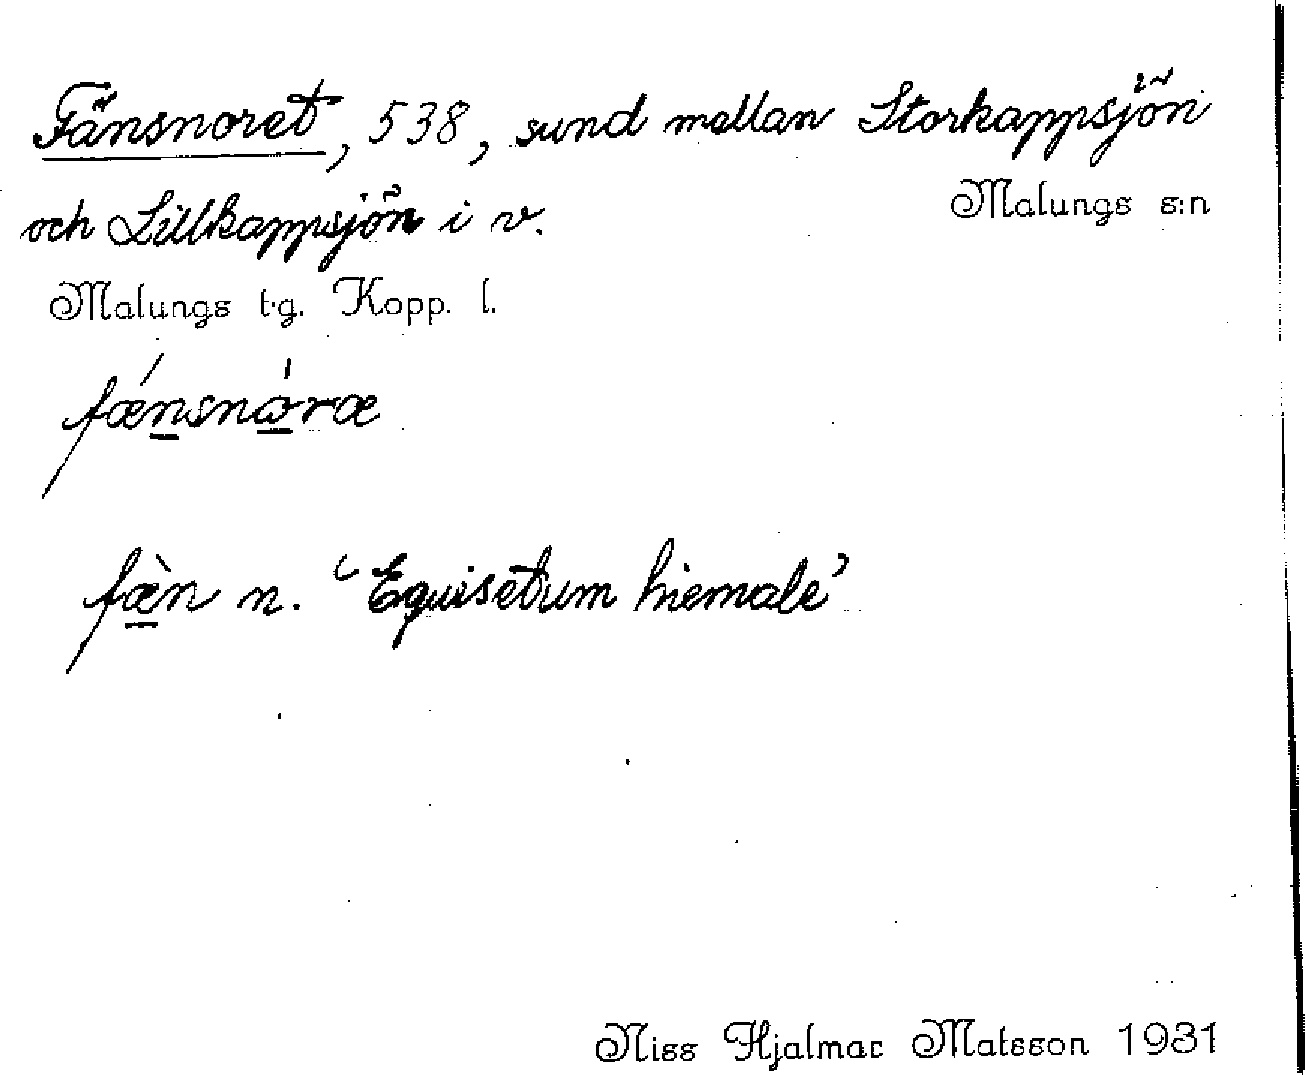 Fänsnoret, 538, sund mellan Storkappsjön
och Lillkappsjön i v.
Malungs s:n
Malungs t.g. Kopp. l.
fænsnåræ
fæ̀n n. ‘Equisetum hiemale’
Niss Hjalmar Matsson 1931